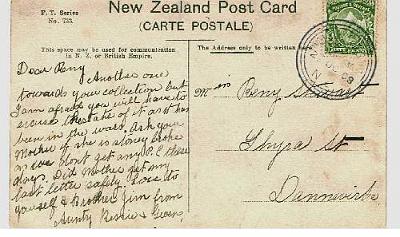 F. T. Series
No. 735.
New Zealand Post Card
(CARTE POSTALE)
This space may be used for communication
in N. Z. or British Empire.
The Address only to be written
Dear Reny
Another one
towards your collection but
I am afraid you will have to
excuse the state of it as it has
been in the wars. Ask your
Mother if she is stoney broke
as we don't get any P.C these
days. Did Mother get my
last letter safely. Love to
yourself & Brother Jim from
Aunty Bessie &
Miss Reny Stewart
Thyra St
Dannevirke